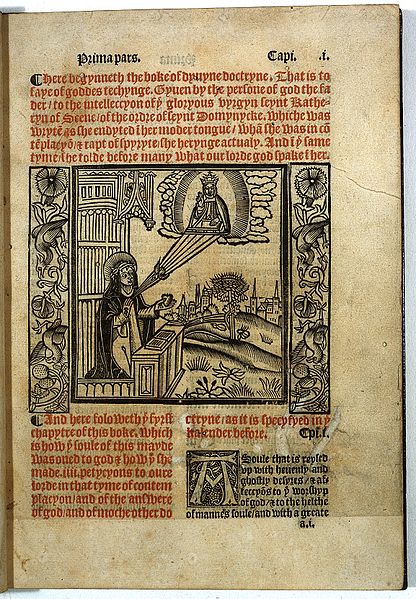 Prima pars. Capi. .i.
¶Here begynneth the boke of dyuyne doctryne. That is to
saye of goddes techynge. Gyuen by the persone of god the fa
der / to the intelleccyon of yͤ gloryous vyrgyn seynt Kathe-
ryn of Seene / of the ordre of seynt Domynycke. Whiche was
wrytē as she endyted ī her moder tongue / whā she was in cō
tēplacyō / & rapt of spyryte she herynge actualy. And ī yͤ same
tyme / she tolde before many what our lorde god spake ī her.
¶And here foloweth yͤ fyrst
chapytre of this boke. Which
is how yͤ soule of this mayde
was oned to god & how yͤ she
made .iiii. petycyons to oure
lorde in that tyme of contem
placyon / and of the answere
of god / and of moche other do
ctryne / as it is specyfyed in yͤ
kalender before. Cpł.i.
A Soule that is reysed
vp with heuenly and
ghostly desyres / & af-
feccyōs to yͤ worshyp
of god / & to the helthe
of mannes soule / and with a greate
a.i.